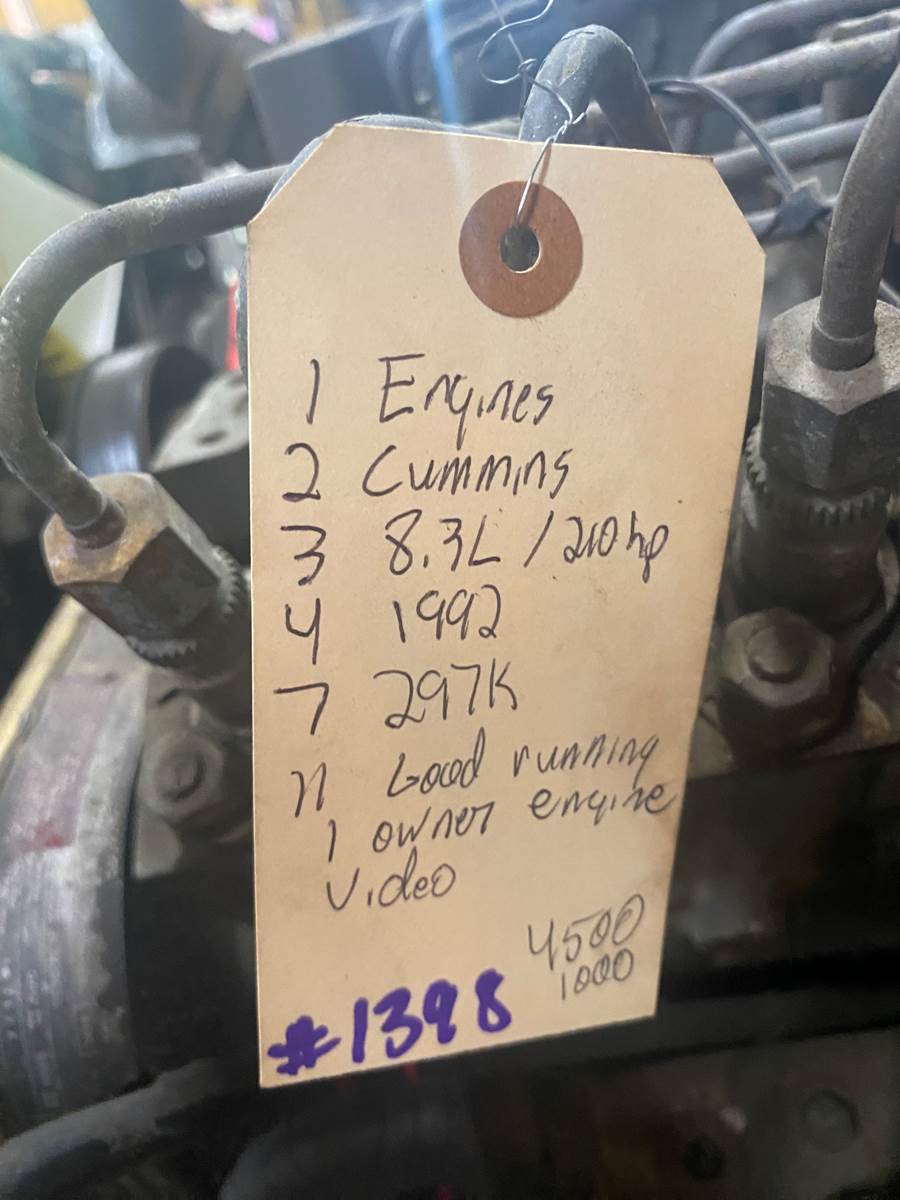 1 Engines
2 Cummins
3 8.3L / 210hp
4 1992
7 297K
11 Good running
1 owner engine
Video
4500
1000
#1398